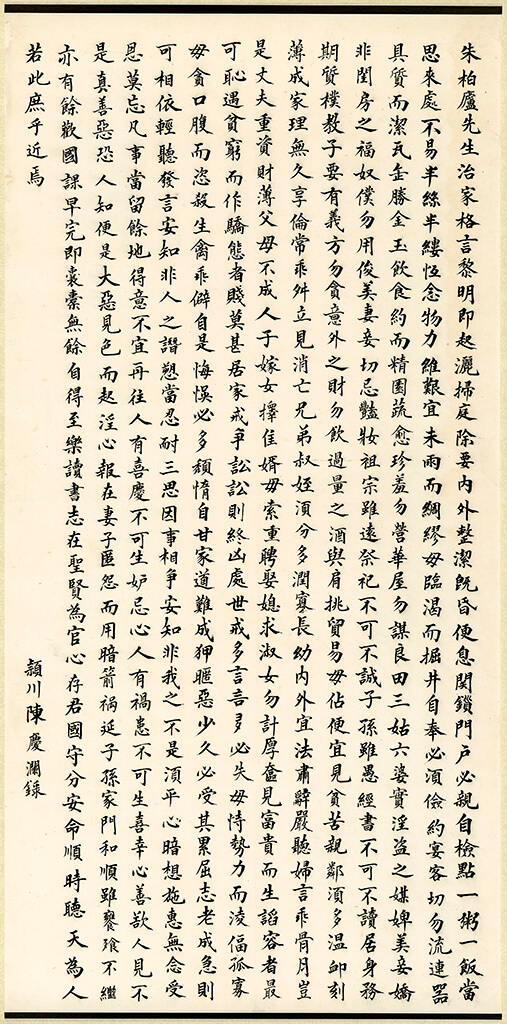 朱柏廬先生治家格言黎明即起灑掃庭除要內外整潔既昏便息関鎖門戶必親自檢點一粥一飯當
思來處不易半絲半縷恆念物力維艱宜未雨而綢繆毋臨渴而掘井自奉必須儉約宴客切勿流連器
具質而潔瓦缶勝金玉飲食約而精園蔬愈珍羞勿營華屋勿謀良田三姑六婆實淫盜之媒婢美妾嬌
非閨房之福奴僕勿用俊美妻妾切忌豔妝祖宗雖遠祭祀不可不誠子孫雖愚經書不可不讀居身務
期質樸教子要有義方勿貪意外之財勿飲過量之酒與肩挑貿易毋佔便宜見貧苦親鄰須多溫卹刻
薄成家理無久享倫常乖舛立見消亡兄弟叔姪須分多潤寡長幼內外宜法肅辭嚴聽婦言乖骨月豈
是丈夫重資財薄父母不成人子嫁女擇佳婿毋索重聘娶媳求淑女勿計厚奩見富貴而生諂容者最
可恥遇貧窮而作驕態者賤莫甚居家戒爭訟訟則終凶處世戒多言言多必失毋恃勢力而淩偪孤寡
毋貪口腹而恣殺生禽乖僻自是悔悞必多頹惰自甘家道難成狎暱惡少久必受其累屈志老成急則
可相依輕聽發言安知非人之譖愬當忍耐三思因事相爭安知非我之不是須平心暗想施惠無念受
恩莫忘凡事當留餘地得意不宜再往人有喜慶不可生妒忌心人有禍患不可生喜幸心善欲人見不
是真善惡恐人知便是大惡見色而起淫心報在妻子匿怨而用暗箭禍延子孫家門和順雖饔飱不繼
亦有餘歡國課早完即囊橐無餘自得至樂讀書志在聖賢為官心存君國守分安命順時聽天為人
若此庶乎近焉
潁川陳慶瀾錄